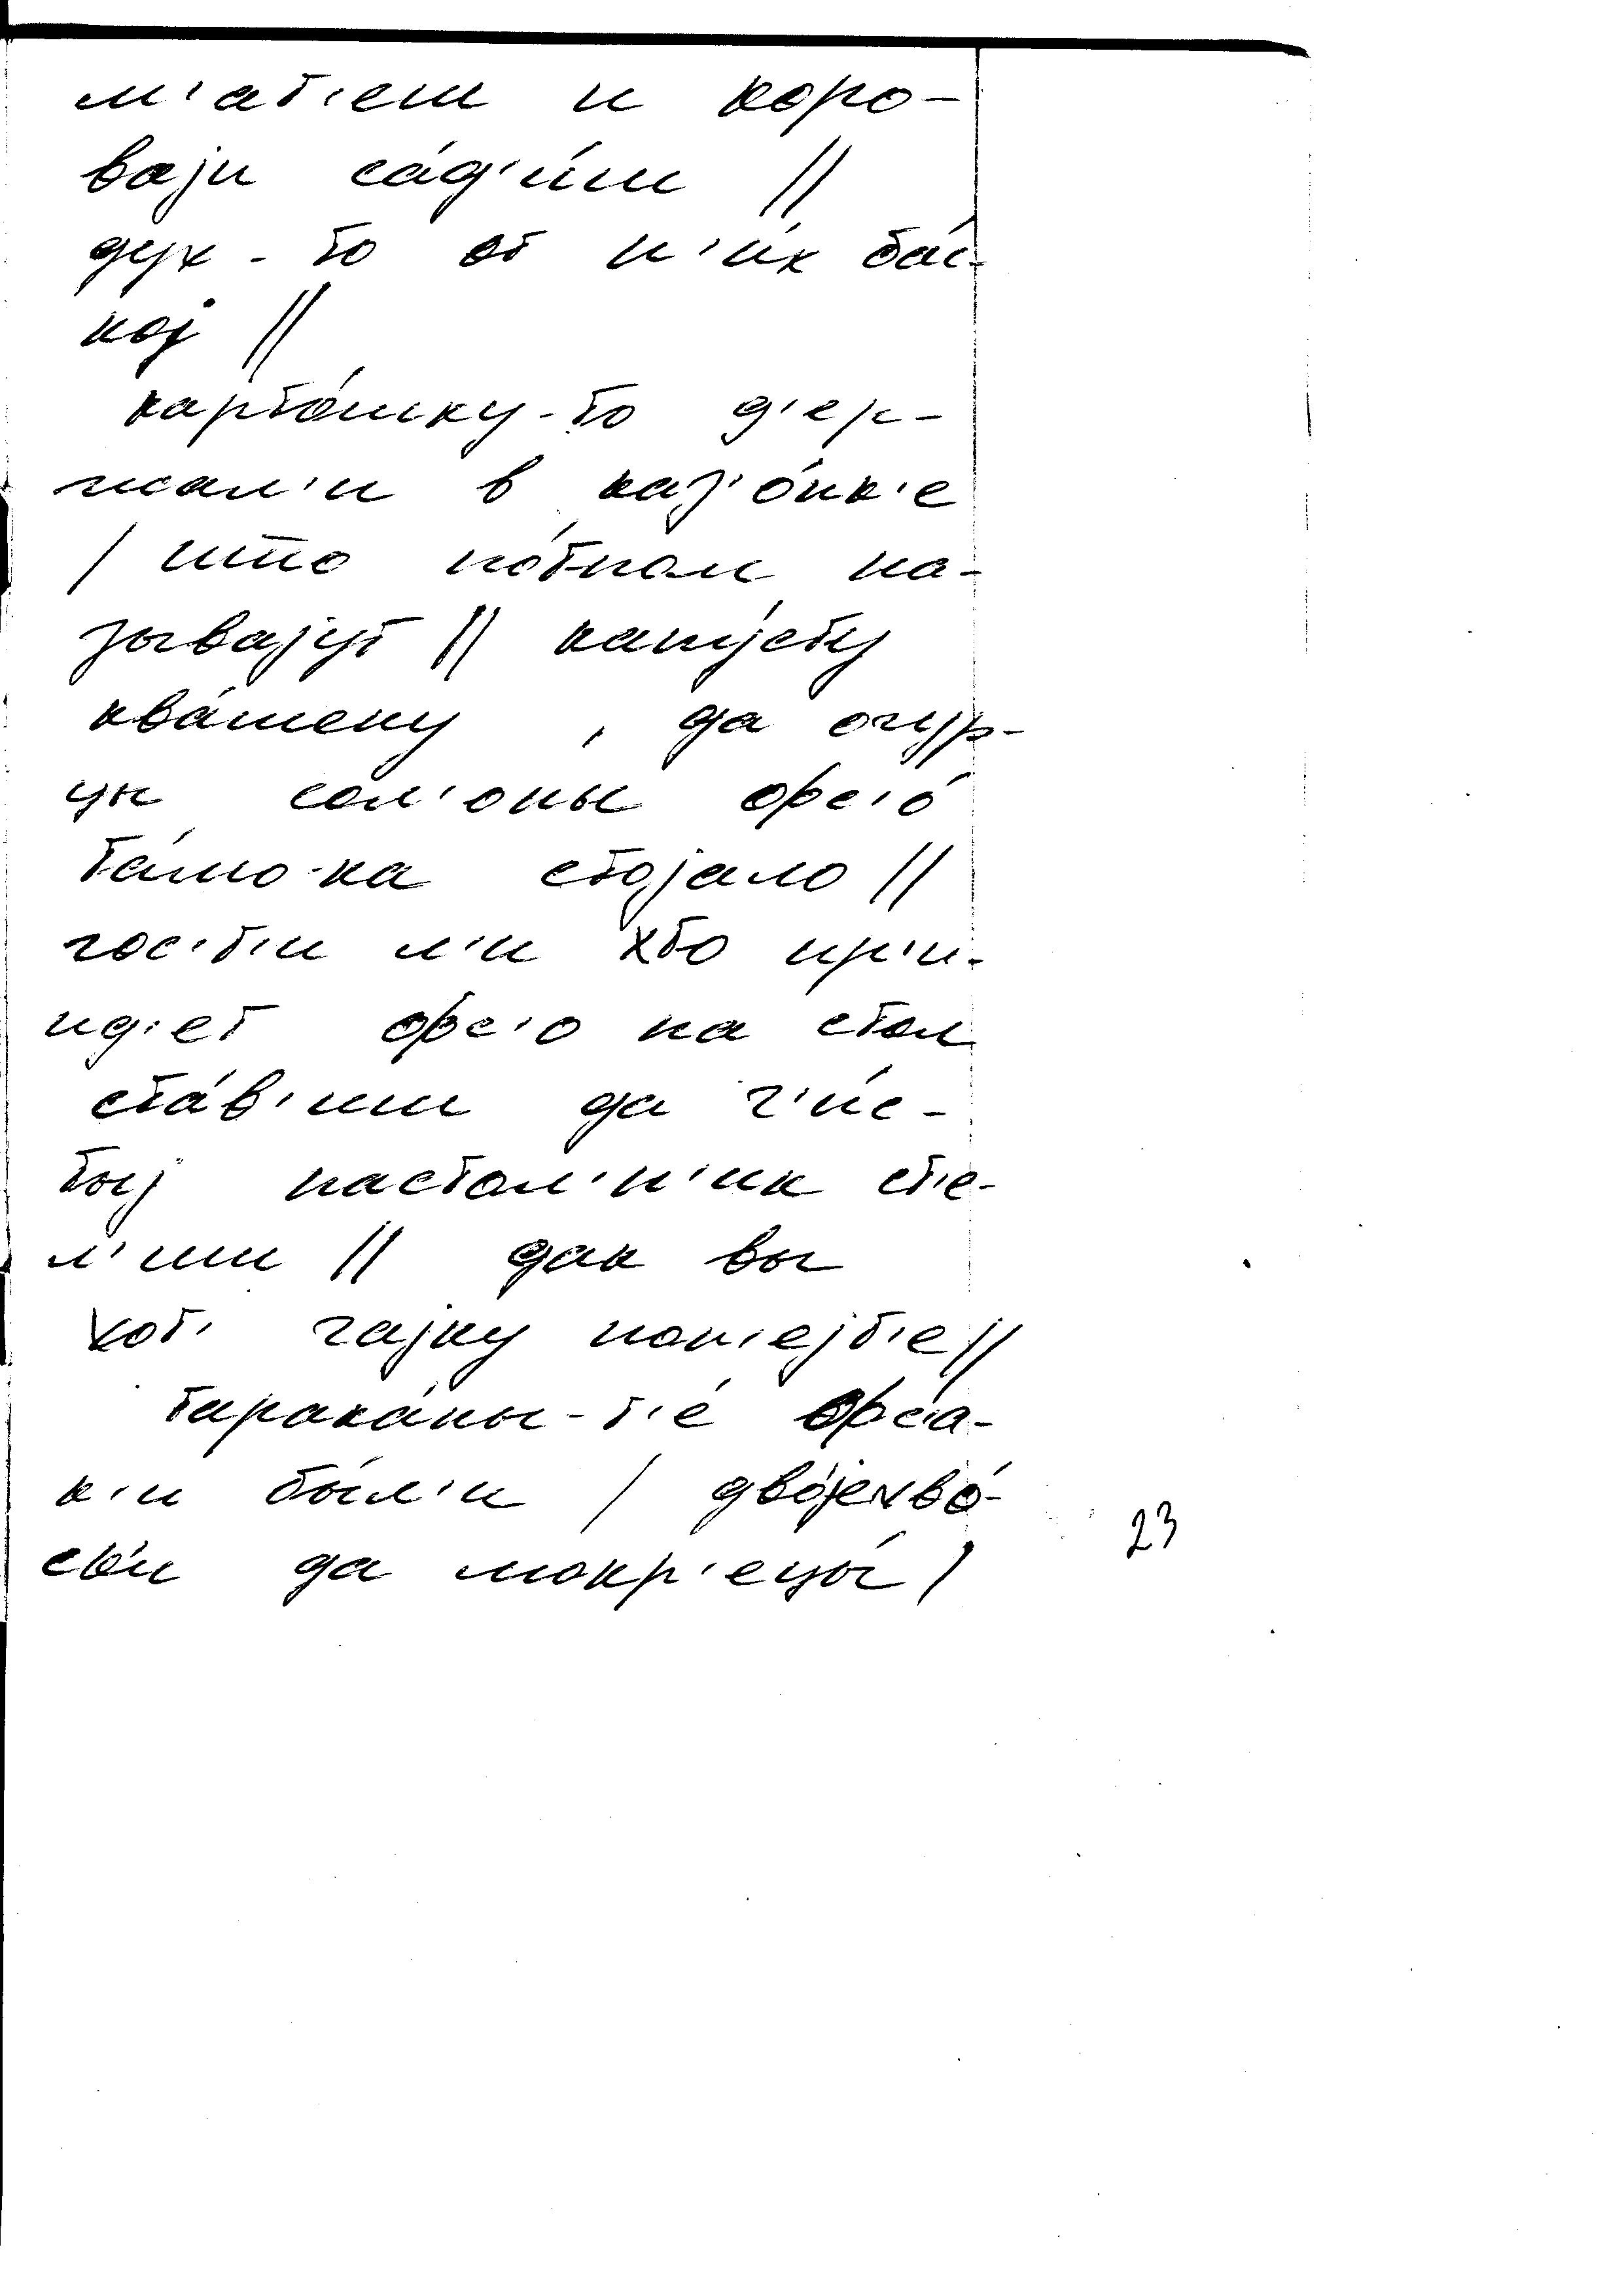 м'ат'еш и коро-
ваји са́д'и́ш //
дух-то от н'и́х ба́с-
кој //
карто́шку-то д'ер-
жал'и в каз'о́нк'е
/ што по́тпол на-
зывајут // капу́сту
ква́шену , да огур-
цы сол'оны офс'о́
та́мо-ка стојало //
гос'т'и л'и хто пр'и-
ид'ет офс'о на стол
ста́в'иш да ч'и́с-
тыј настол'н'ик ст'е-
л'иш // дак вы
хот' чајку поп'ејт'е //
тарака́ны-т'е́ офс'а-
к'и бы́л'и / дво́јехво́-
ст'и да мокр'ецы́ /
23